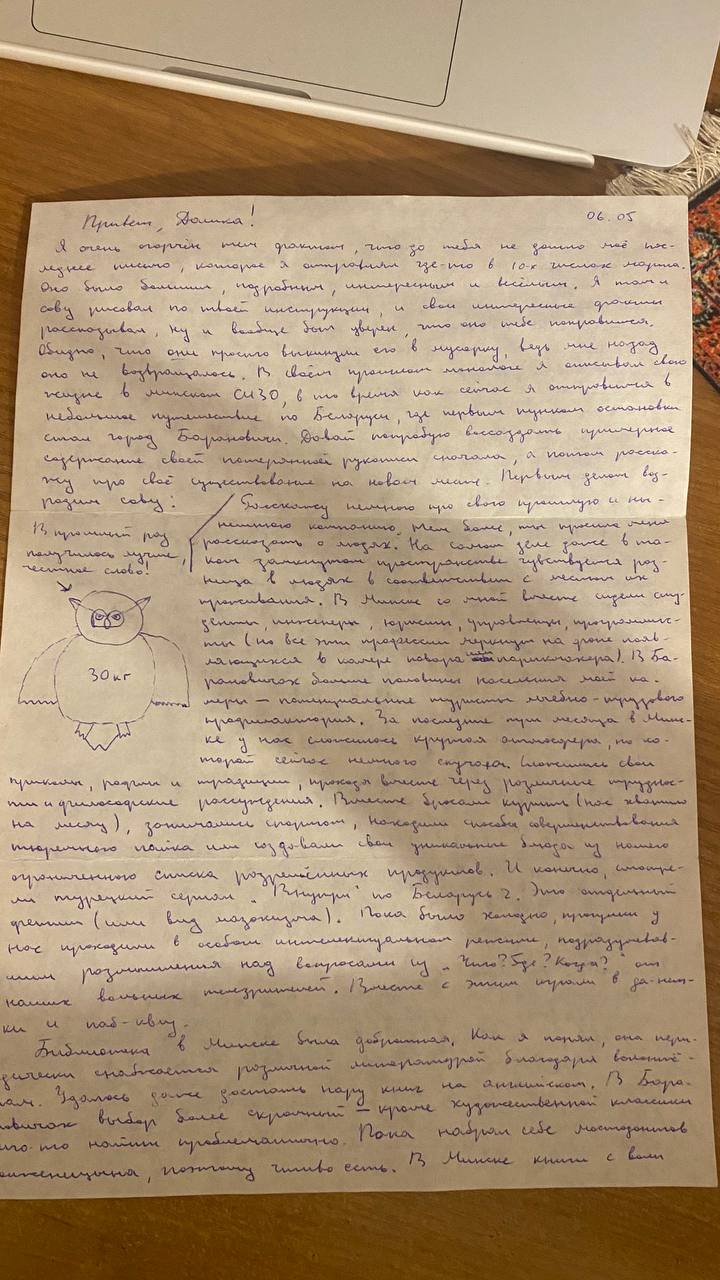 Привет, Дашка!
06.05
Я очень огорчён тем фактом, что до тебя не дошло моё пос-
леднее письмо, которое я отправлял где-то в 10-х числах марта.
Оно было большим, подробным, интересным и весёлым. Я там и
сову рисовал по твоей инструкции, и свои интересные факты
рассказывал, ну и вообще был уверен, что оно тебе понравится.
Обидно, что они просто выкинули его в мусорку, ведь мне назад
оно не возвращалось. В своём прошлом монологе я описывал свою
жизнь в минском СИЗО, в то время как сейчас я отправился в
небольшое путешествие по Беларуси, где первым пунктом остановки
стал город Барановичи. Давай попробую воссоздать примерное
содержание своей потерянной рукописи сначала, а потом расска-
жу про своё существование на новом месте. Первым делом воз-
родим сову:
В прошлый раз
получилось лучше,
честное слово!
30кг
Расскажу немного про свою прошлую и ны-
нешнюю компанию, тем более, ты просила меня
рассказать о людях. На самом деле даже в та-
ком замкнутом пространстве чувствуется раз-
ница в людях в соответствии с местом их
проживания. В Минске со мной вместе сидели сту-
денты, инженеры, юристы, управленцы, программис-
ты (но все эти профессии меркнут на фоне появ-
ляющихся в камере повара или парикмахера). В Ба-
рановичах больше половины населения моей ка-
меры — потенциальные туристы лечебно-трудового
профилактория. За последние три месяца в Минс-
ке у нас сложилась крутая атмосфера, по ко-
торой сейчас немного скучаю. Сложились свои
приколы, рофлы и традиции, проходя вместе через различные труднос-
ти и философские рассуждения. Вместе бросали курить (нас хватило
на месяц), занимались спортом, находили способы совершенствования
тюремного пайка или создавали свои уникальные блюда из нашего
ограниченного списка разрешённых продуктов. И конечно, смотре-
ли турецкий сериал "Внутри" по Беларусь 2. Это отдельный
фетиш (или вид мазохизма). Пока было холодно, прогулки у
нас проходили в особом интеллектуальном режиме, подразумевав-
шим размышления над вопросами из "Что? Где? Когда?" от
наших вольных телезрителей. Вместе с этим играли в да-нет-
ки и паб-квиз.
Библиотека в Минске была добротная. Как я понял, она пери-
дически снабжается различной литературой благодаря волонтё-
рам. Удалось даже достать пару книг на английском. В Бара-
новичах выбор более скромный — кроме художественной классики
что-то найти проблематично. Пока набрал себе мастодонтов
олженицына, поэтому чтиво есть. В Минске книги с воли